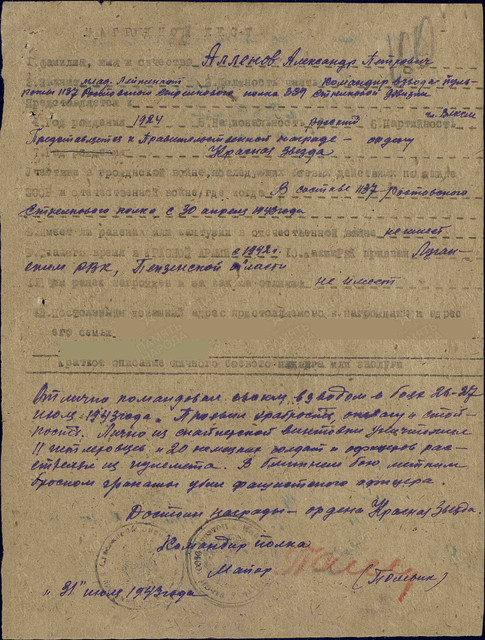 НАГРАДНОЙ ЛИСТ
1. Фамилия, имя и отчество Алленов Александр Петрович
2. Звание млад. Лейтенант 3. Должность, часть командир взвода пуль
роты 1137 Ростовского Стрелкового полка 339 Стрелковой Дивизии
Представляется к
4. Год рождения 1924 5. Национальность русский 6. Партийность чл. ВЛКСМ
Представляется к Правительственной награде - ордену
Красная Звезда
Участие в гражданской войне, последующих боевых действиях по защите
СССР и отечественной войне, где когда В составе 1137 Ростовского
Стрелкового полка с 30 апреля 1943 года
8. Имеет ли ранения или контузии в отечественной войне не имеет
9. С какого время в КРАСНОЙ АРМИИ с 1942 г 10. Каким РВК призван Луган-
ским РВК, Пензенской области
11. Чем ранее награжден и за какие отличия не имеет
12. Постоянный домашний адрес представляемого к награждению и адрес
его семьи.
Краткое описание личного боевого подвига или заслуги
Отлично командовал своим взводом в боях 26-27
июля 1943 года. Проявил храбрость, отвагу и стой-
кость. Лично из снайперской винтовки уничтожил
11 гитлеровцев, и 20 немецких солдат и офицеров рас-
стрелял из пулемета. В ближнем бою метким
броском гранаты убил фашистского офицера.
Достоин награды - ордена Красная Звезда.
Командир полка
Майор
"31" июля 1943 года